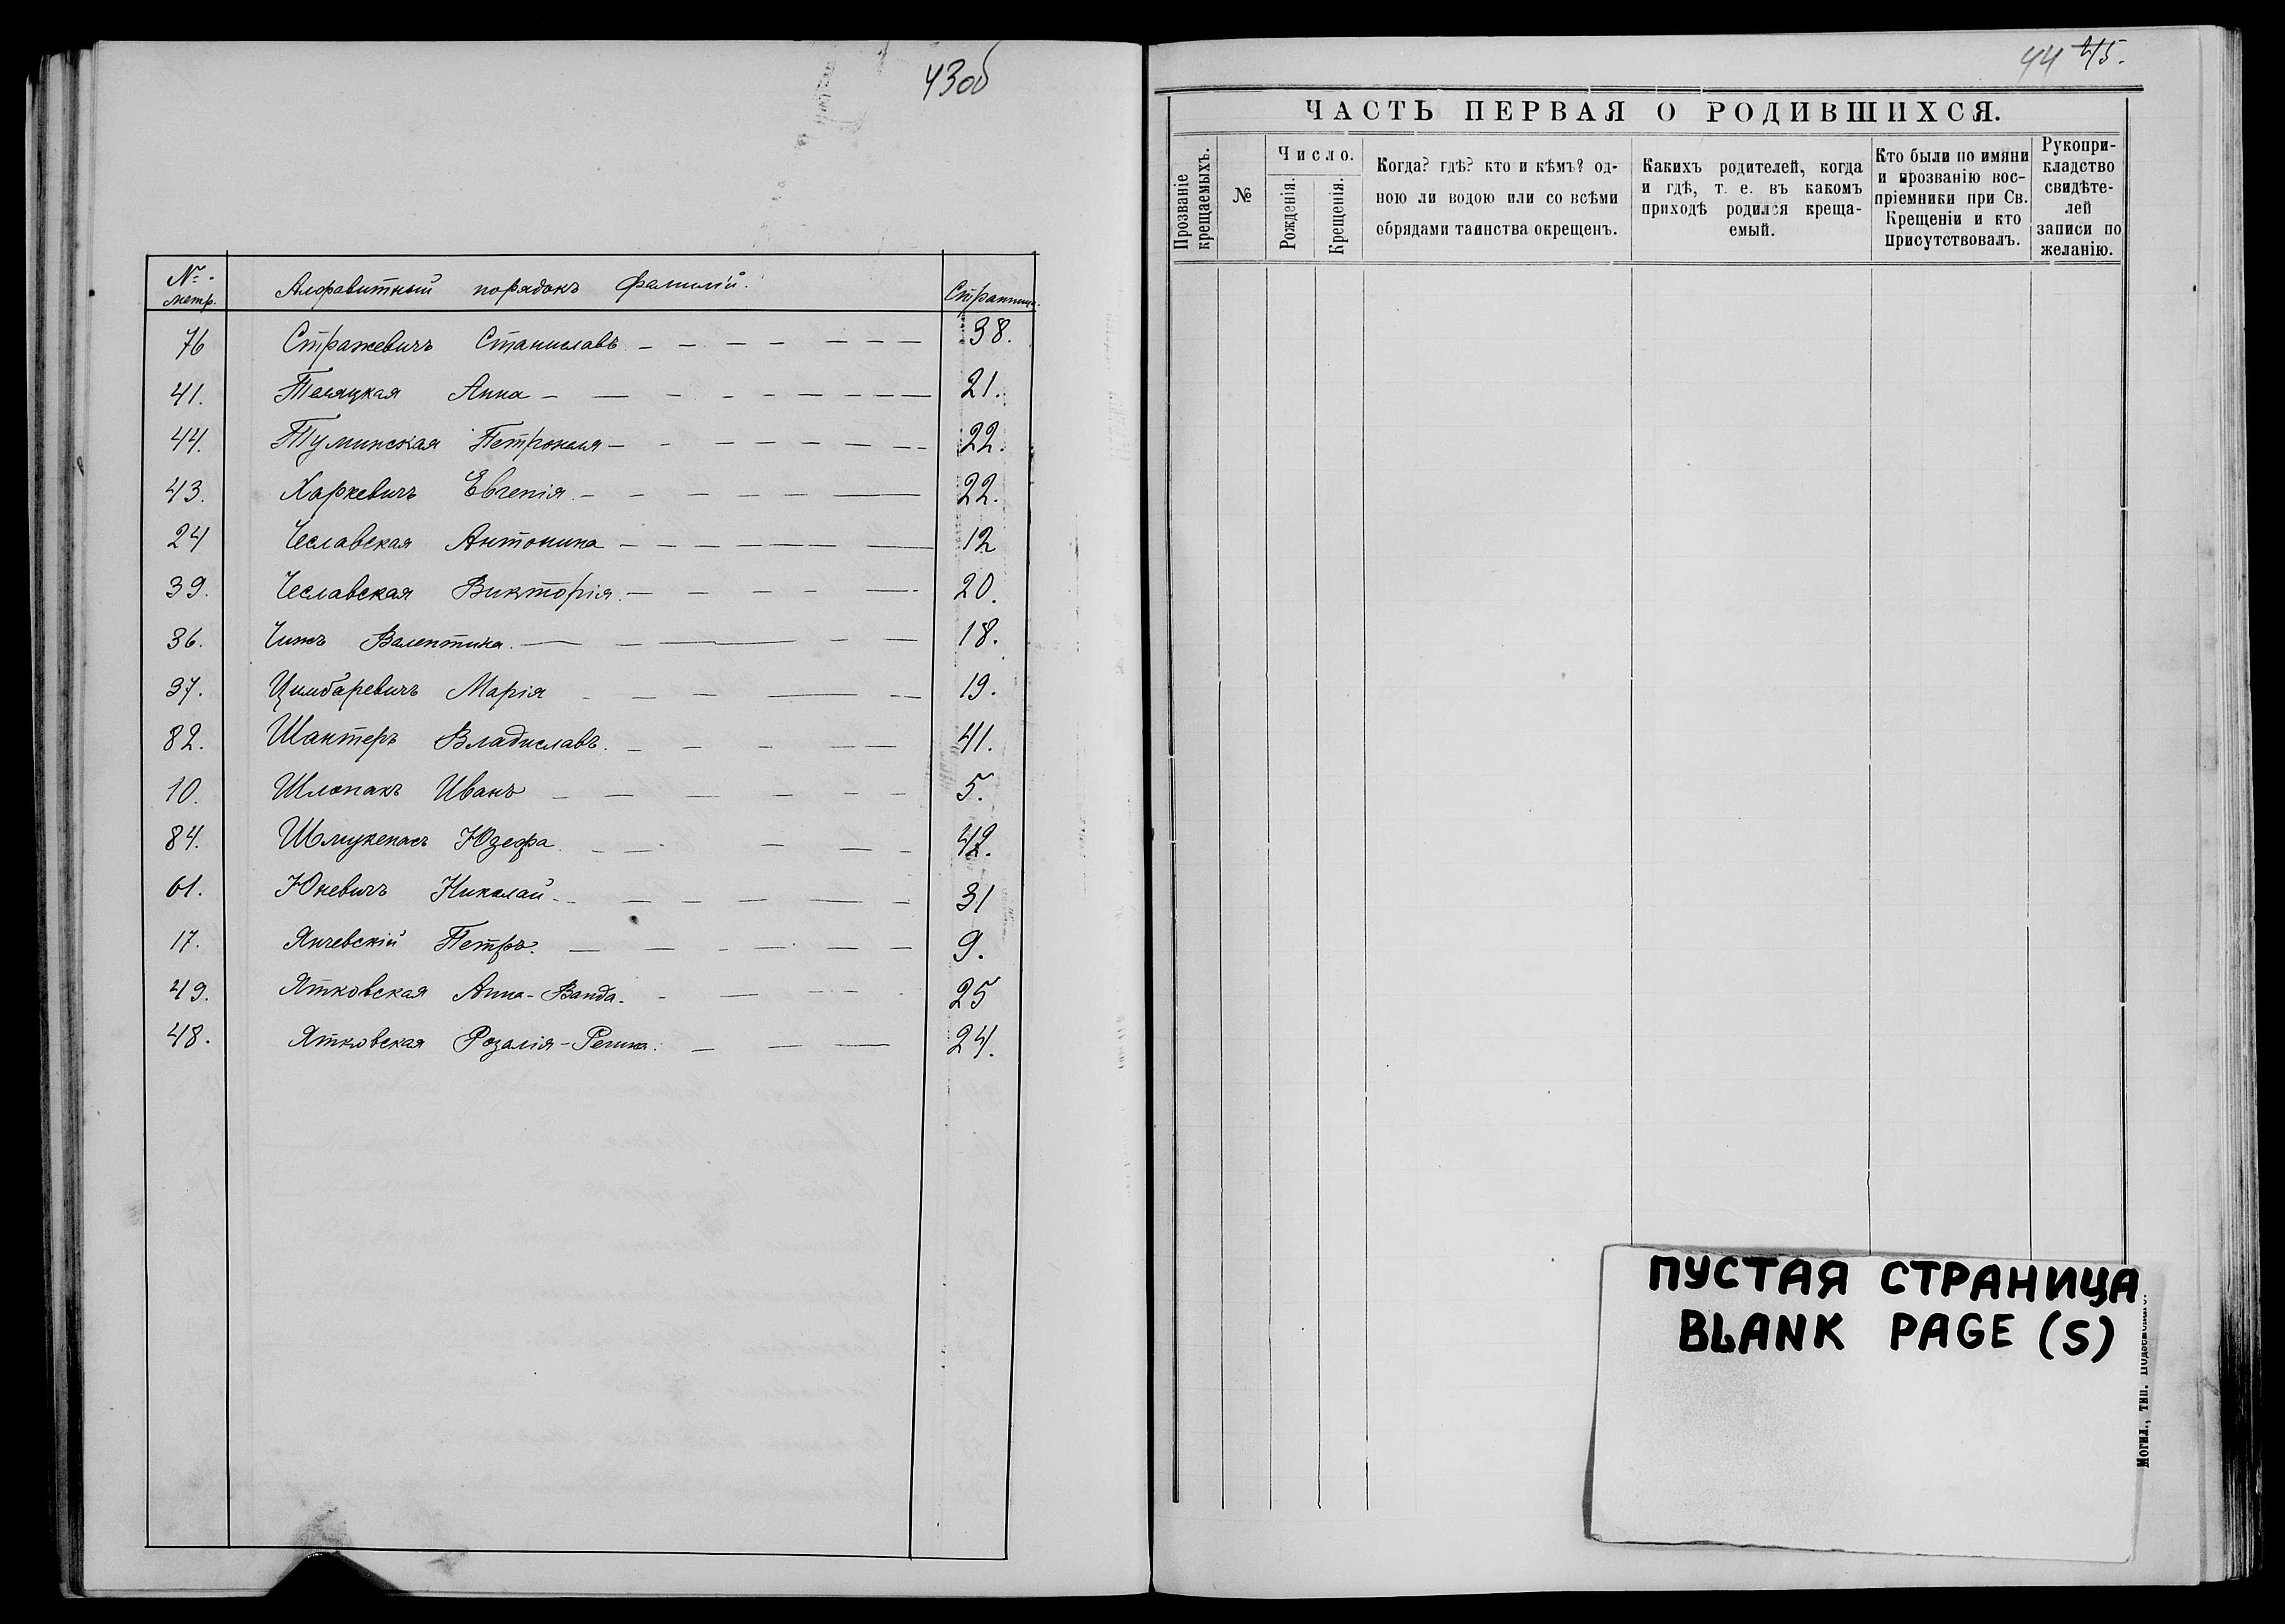 43об
№ метр. Алфавитный порядокъ фамилій. Страница.
76 Стражевичъ Станиславъ 38.
41. Анна 21.
44. Туминская Петронеля 22.
43. Харкевичъ Евгенія 22.
24 Чеславская Антонина 12
39. Чеславская Викторія 20.
36. Чижъ Валентина 18.
37. Цимбаревичъ Марія 19.
82. Шантеръ Владиславъ 41.
10. Шлопакъ Иванъ 5.
84. Юзефа 42.
61. Юневичъ Николай 31
17. Янчевскій Петръ 9.
49. Ятковская Анна-Ванда 25
48. Ятковская Розалія-Регина 24.
44 45.
ЧАСТЬ ПЕРВАЯ О РОДИВШИХСЯ.
Прозваніе крещаемыхъ.
№
Число.
Рожденія.
Крещенія.
Когда? гдѣ? кто и кѣмъ? од-
ною ли водою или со всѣми
обрядами таинства окрещенъ.
Какихъ родителей, когда
и гдѣ, т. е. въ какомъ
приходѣ родился креща-
емый.
Кто были по имяни
и прозванію вос-
пріемники при Св.
Крещеніи и кто
присутствовалъ.
Рукопри-
кладство
свидѣте-
лей
записи по
желанію.
ПУСТАЯ СТРАНИЦА
BLANK PAGE (S)
Могил., тип.